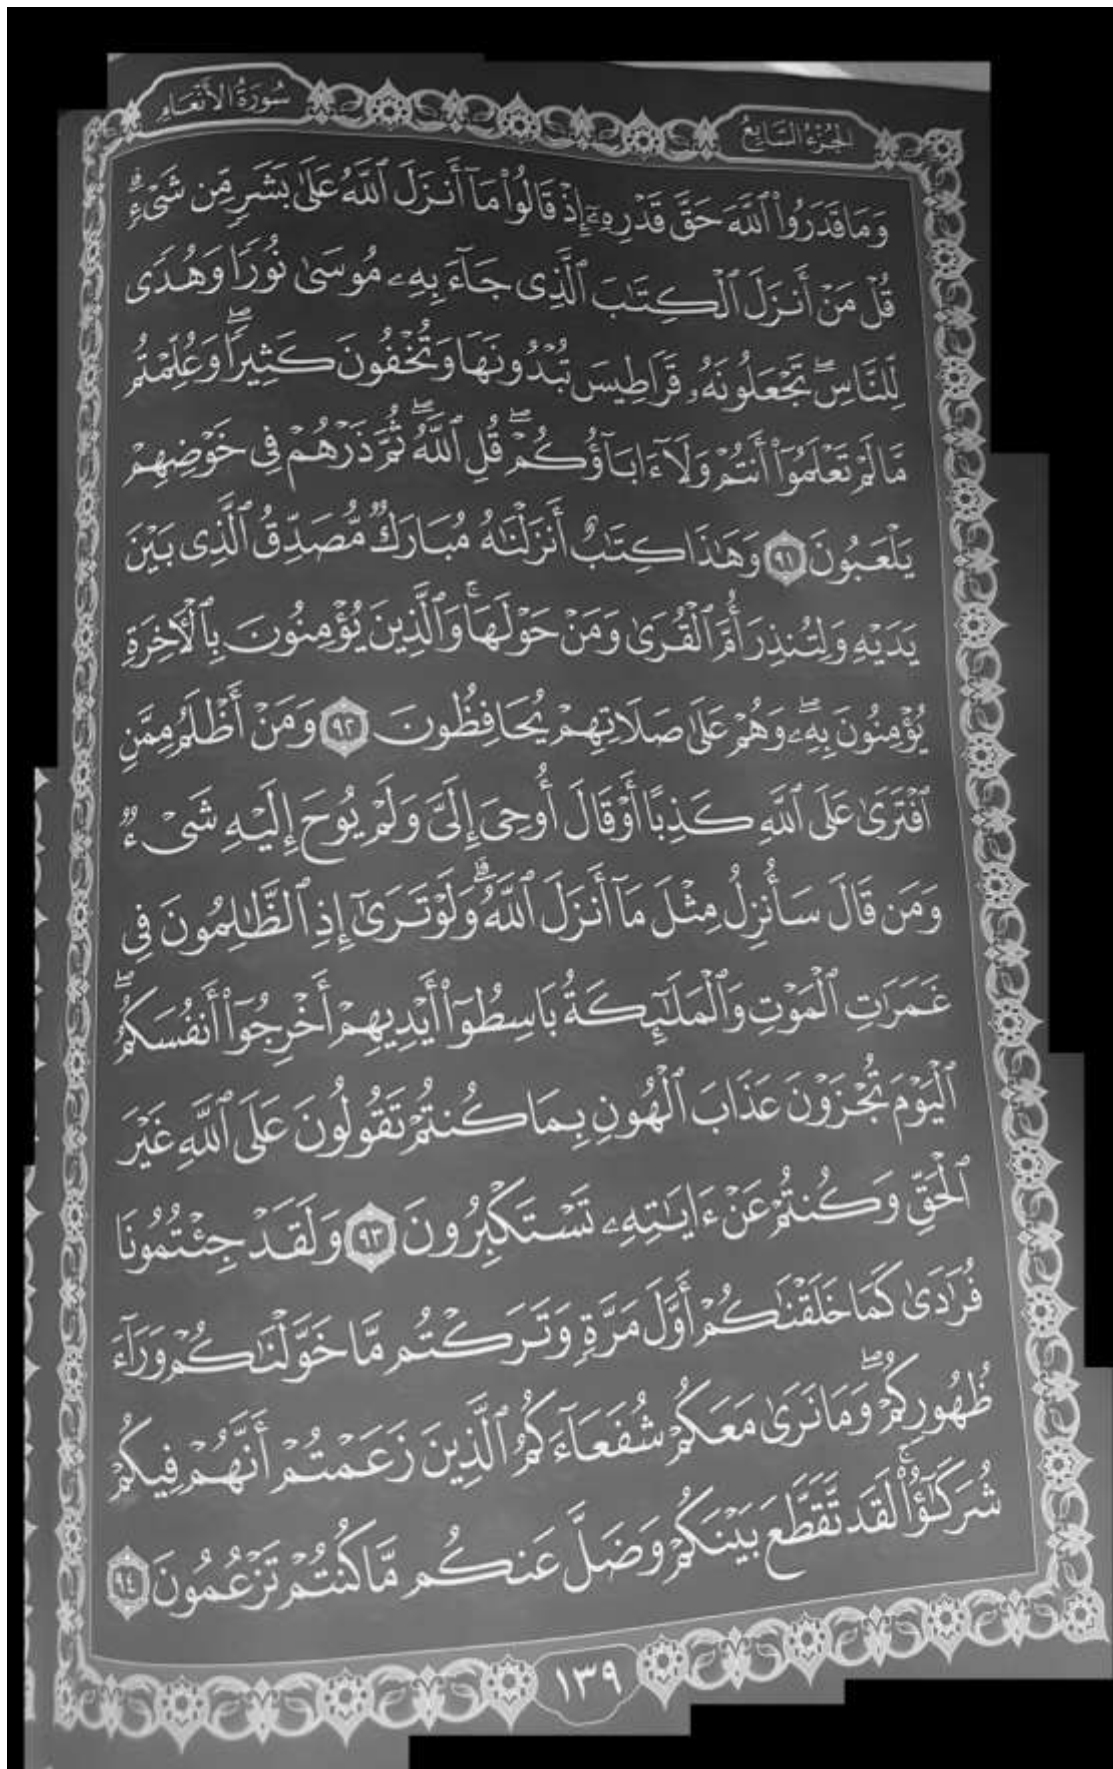 الجزء السابع
سورة الأنعام
وَمَا قَدَرُوا۟ ٱللَّهَ حَقَّ قَدْرِهِۦٓ إِذْ قَالُوا۟ مَآ أَنزَلَ ٱللَّهُ عَلَىٰ بَشَرٍ مِّن شَىْءٍۗ
قُلْ مَنْ أَنزَلَ ٱلْكِتَٰبَ ٱلَّذِى جَآءَ بِهِۦ مُوسَىٰ نُورًا وَهُدًى
لِّلنَّاسِۖ تَجْعَلُونَهُۥ قَرَاطِيسَ تُبْدُونَهَا وَتُخْفُونَ كَثِيرًاۖ وَعُلِّمْتُم
مَّا لَمْ تَعْلَمُوٓا۟ أَنتُمْ وَلَآ ءَابَآؤُكُمْۖ قُلِ ٱللَّهُۖ ثُمَّ ذَرْهُمْ فِى خَوْضِهِمْ
يَلْعَبُونَ ٩١ وَهَٰذَا كِتَٰبٌ أَنزَلْنَٰهُ مُبَارَكٌ مُّصَدِّقُ ٱلَّذِى بَيْنَ
يَدَيْهِ وَلِتُنذِرَ أُمَّ ٱلْقُرَىٰ وَمَنْ حَوْلَهَاۚ وَٱلَّذِينَ يُؤْمِنُونَ بِٱلْءَاخِرَةِ
يُؤْمِنُونَ بِهِۦۖ وَهُمْ عَلَىٰ صَلَاتِهِمْ يُحَافِظُونَ ٩٢ وَمَنْ أَظْلَمُ مِمَّنِ
ٱفْتَرَىٰ عَلَى ٱللَّهِ كَذِبًا أَوْ قَالَ أُوحِىَ إِلَىَّ وَلَمْ يُوحَ إِلَيْهِ شَىْءٌ
وَمَن قَالَ سَأُنزِلُ مِثْلَ مَآ أَنزَلَ ٱللَّهُۗ وَلَوْ تَرَىٰٓ إِذِ ٱلظَّٰلِمُونَ فِى
غَمَرَٰتِ ٱلْمَوْتِ وَٱلْمَلَٰٓئِكَةُ بَاسِطُوٓا۟ أَيْدِيهِمْ أَخْرِجُوٓا۟ أَنفُسَكُمُۖ
ٱلْيَوْمَ تُجْزَوْنَ عَذَابَ ٱلْهُونِ بِمَا كُنتُمْ تَقُولُونَ عَلَى ٱللَّهِ غَيْرَ
ٱلْحَقِّ وَكُنتُمْ عَنْ ءَايَٰتِهِۦ تَسْتَكْبِرُونَ ٩٣ وَلَقَدْ جِئْتُمُونَا
فُرَٰدَىٰ كَمَا خَلَقْنَٰكُمْ أَوَّلَ مَرَّةٍ وَتَرَكْتُم مَّا خَوَّلْنَٰكُمْ وَرَآءَ
ظُهُورِكُمْۖ وَمَا نَرَىٰ مَعَكُمْ شُفَعَآءَكُمُ ٱلَّذِينَ زَعَمْتُمْ أَنَّهُمْ فِيكُمْ
شُرَكَٰٓؤُا۟ۚ لَقَد تَّقَطَّعَ بَيْنَكُمْ وَضَلَّ عَنكُم مَّا كُنتُمْ تَزْعُمُونَ ٩٤
١٣٩